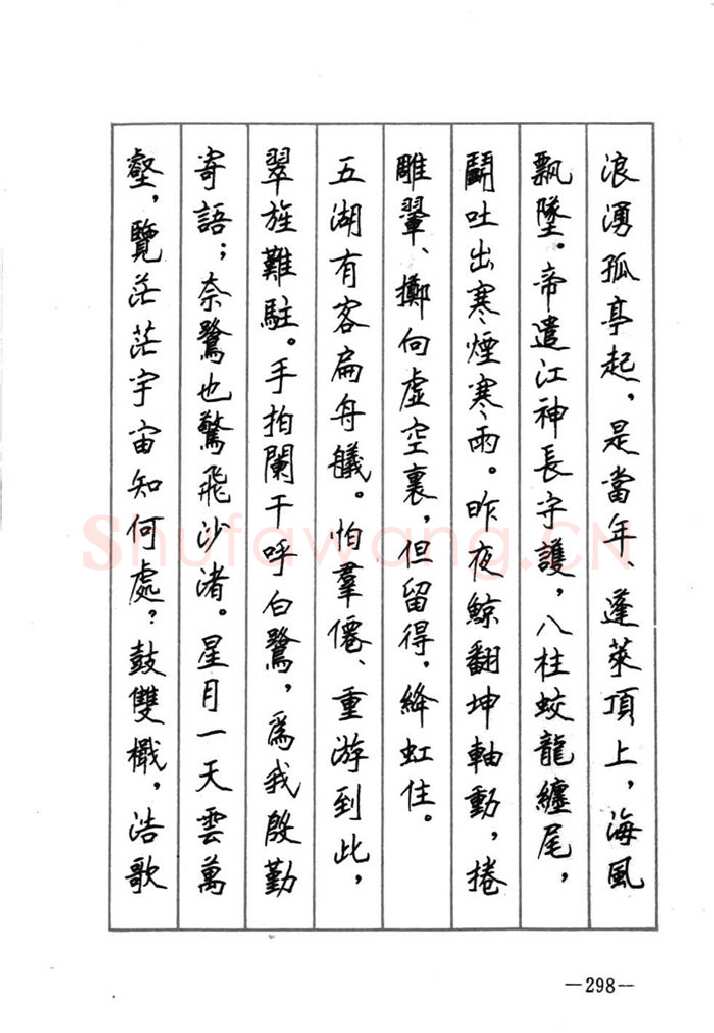 浪湧孤亭起，是當年、蓬萊頂上，海風
飄墜。帝遣江神長守護，八柱蛟龍纏尾，
鬭吐出寒煙寒雨。昨夜鯨翻坤軸動，捲
雕翬、擲向虛空裏，但留得，絳虹住。
五湖有客扁舟艤。怕羣僊、重游到此，
翠旌難駐。手拍闌干呼白鷺，爲我殷勤
寄語；奈鷺也驚飛沙渚。星月一天雲萬
壑，覽茫茫宇宙知何處？鼓雙檝，浩歌
Shufawang.CN
—298—